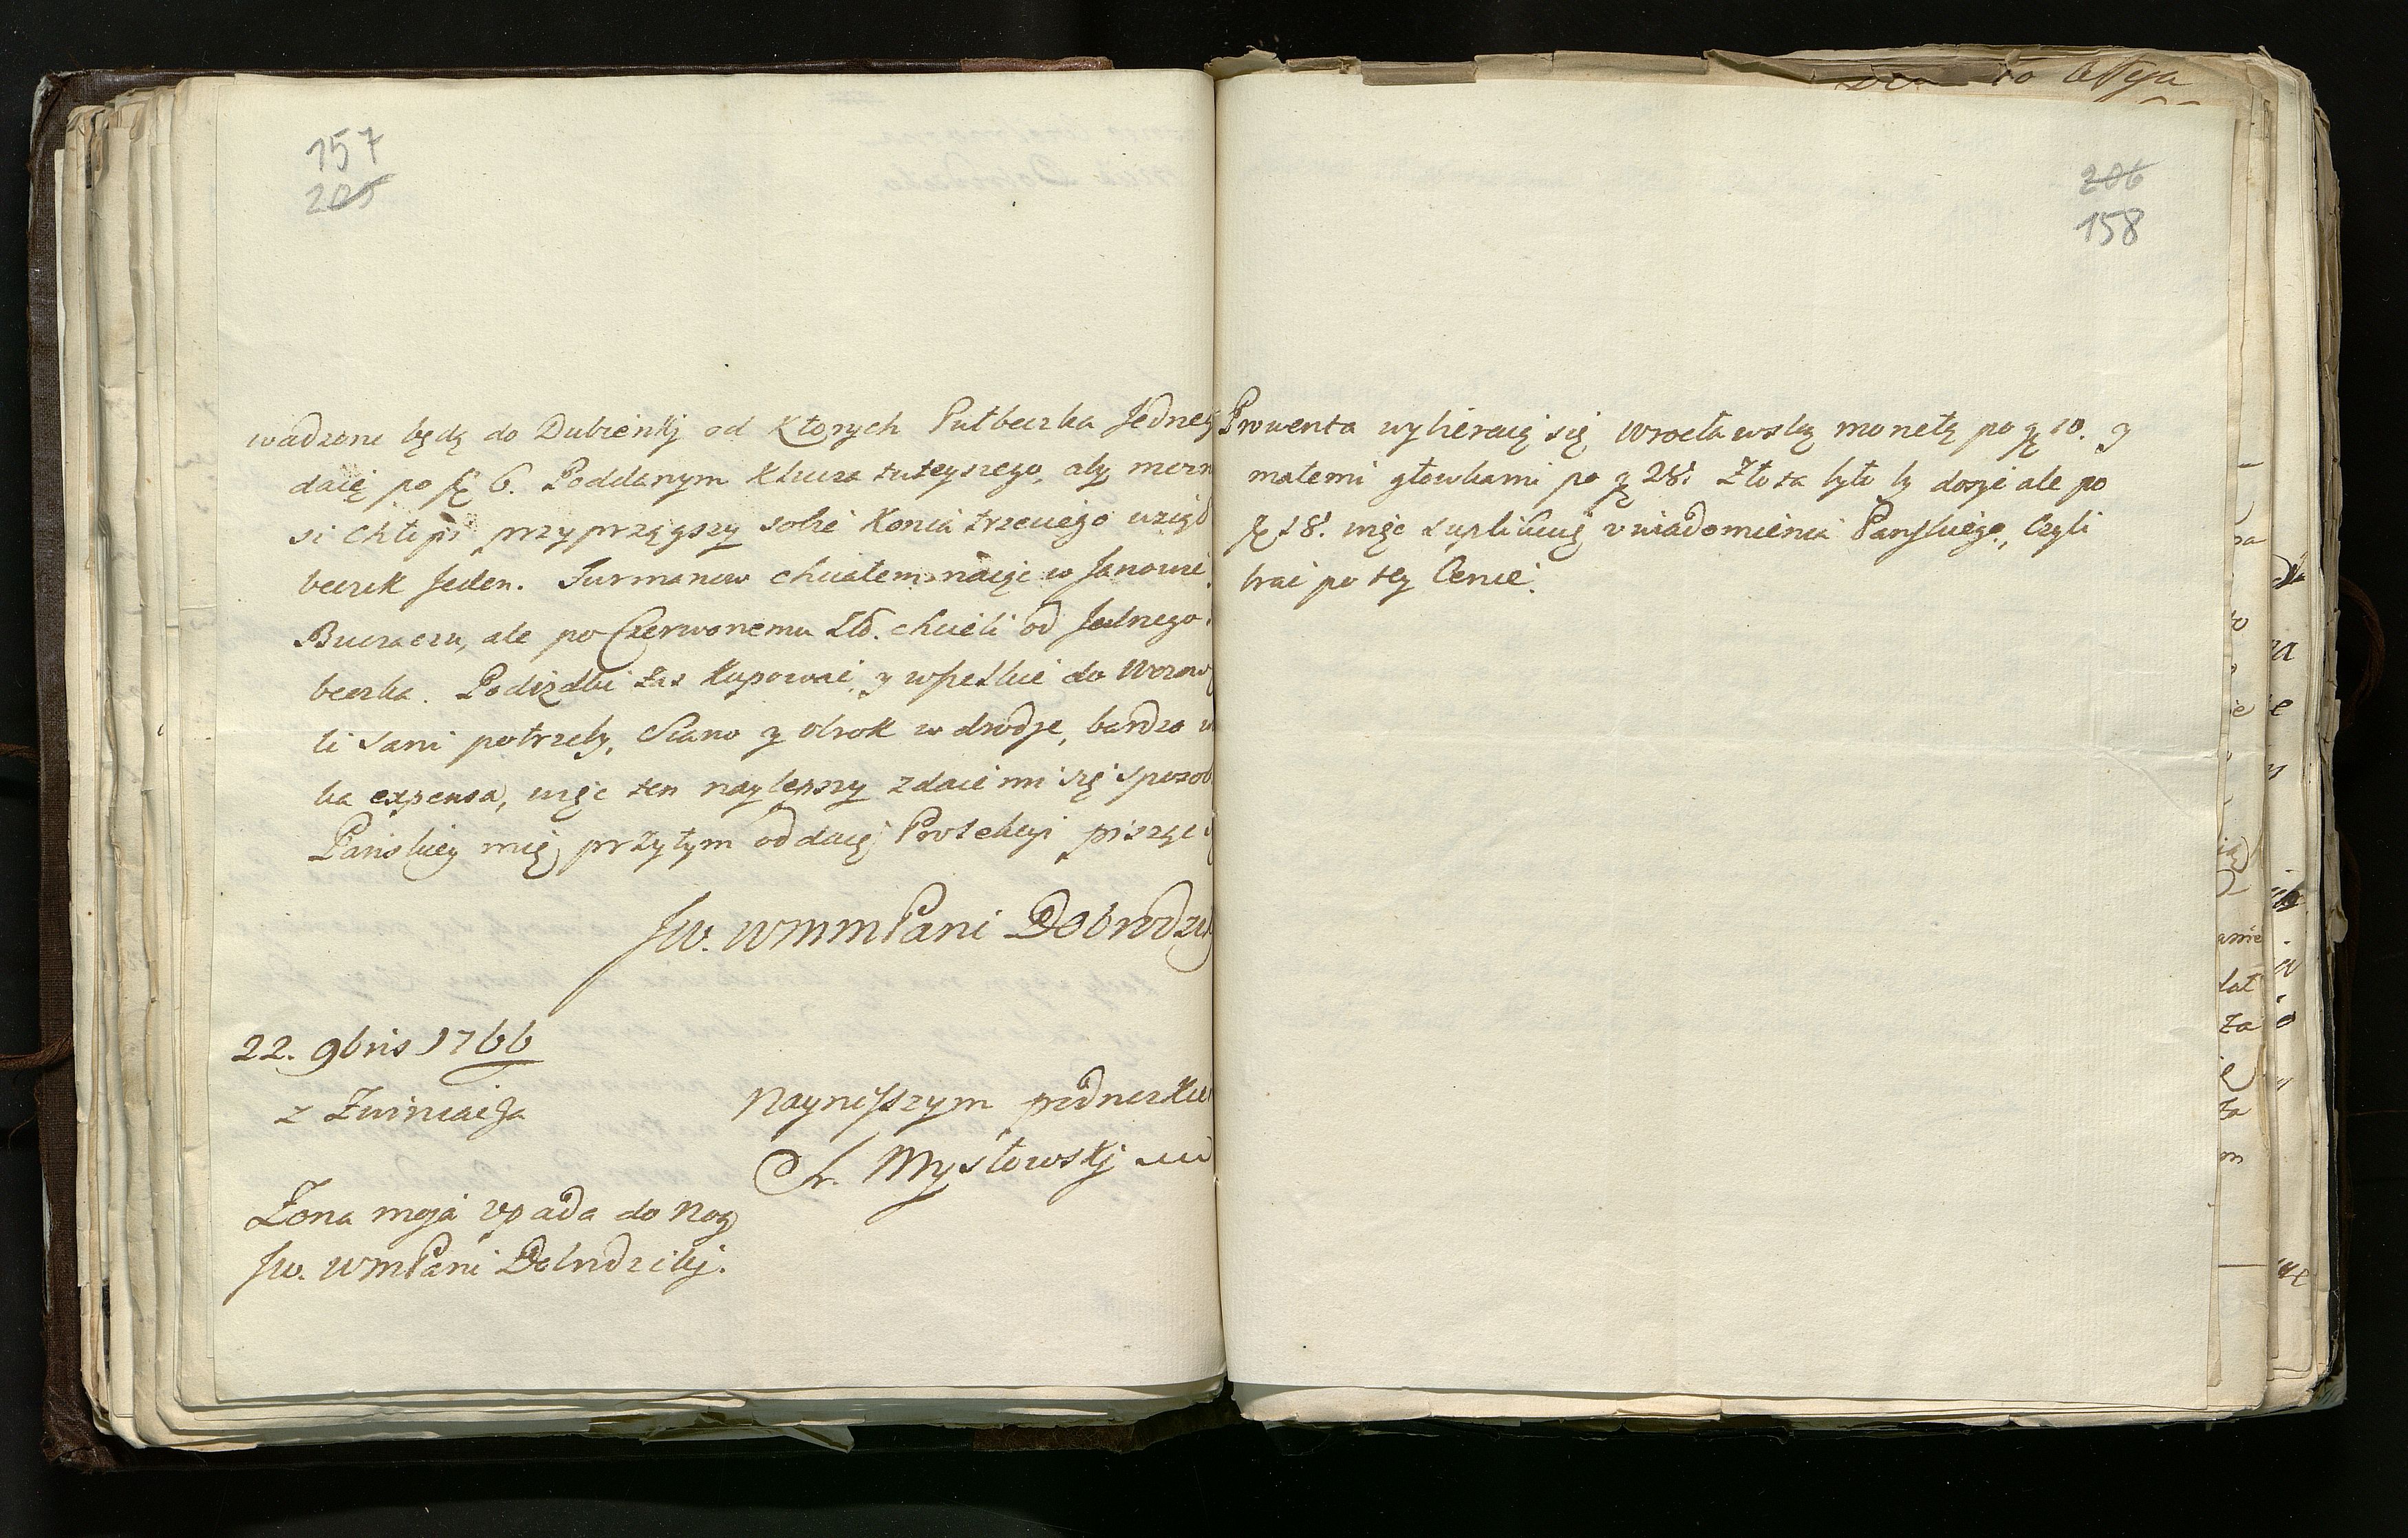 157
205
wadzone będą do Dubienkj od Ktorych Pułbeczka Jedne
daię po fl 6. Poddanym Klucza tuteyszego, aby
si chłopi przyprzągszy sobie Konia trzeciego
beczek Jeden. Furmanow chciałem naiąć w Janowie
Buczaczu, ale po Czerwonemu Zło. chcieli od Jednego
beczka. Podiazdki zas Kupować, y wszelkie do
li sani potrzeby, Siano y obrok w drodze, bardzo
ka expensa, więc ten naylepszy zdaie mi się sposob
Pańskiey mię przytym oddaię Protekcyi piszę
JW. WMMPani Dobrodzi
22. 9bris 1766
z Zwiniacza
Nayniższym podnozkie
Ch. Mysłowskj
Zona moja vpada do Nog
JW. WMPani Dobrodzikj.
206
158
Prowenta wybieraią się Wrocławską monetą po g 10. y
małemi głowkami po g 28. Złota było by dosyć ale po
fl 18. więc suplikuię vwiadomienia Panskiego, Czyli
brać po tey Cenie.